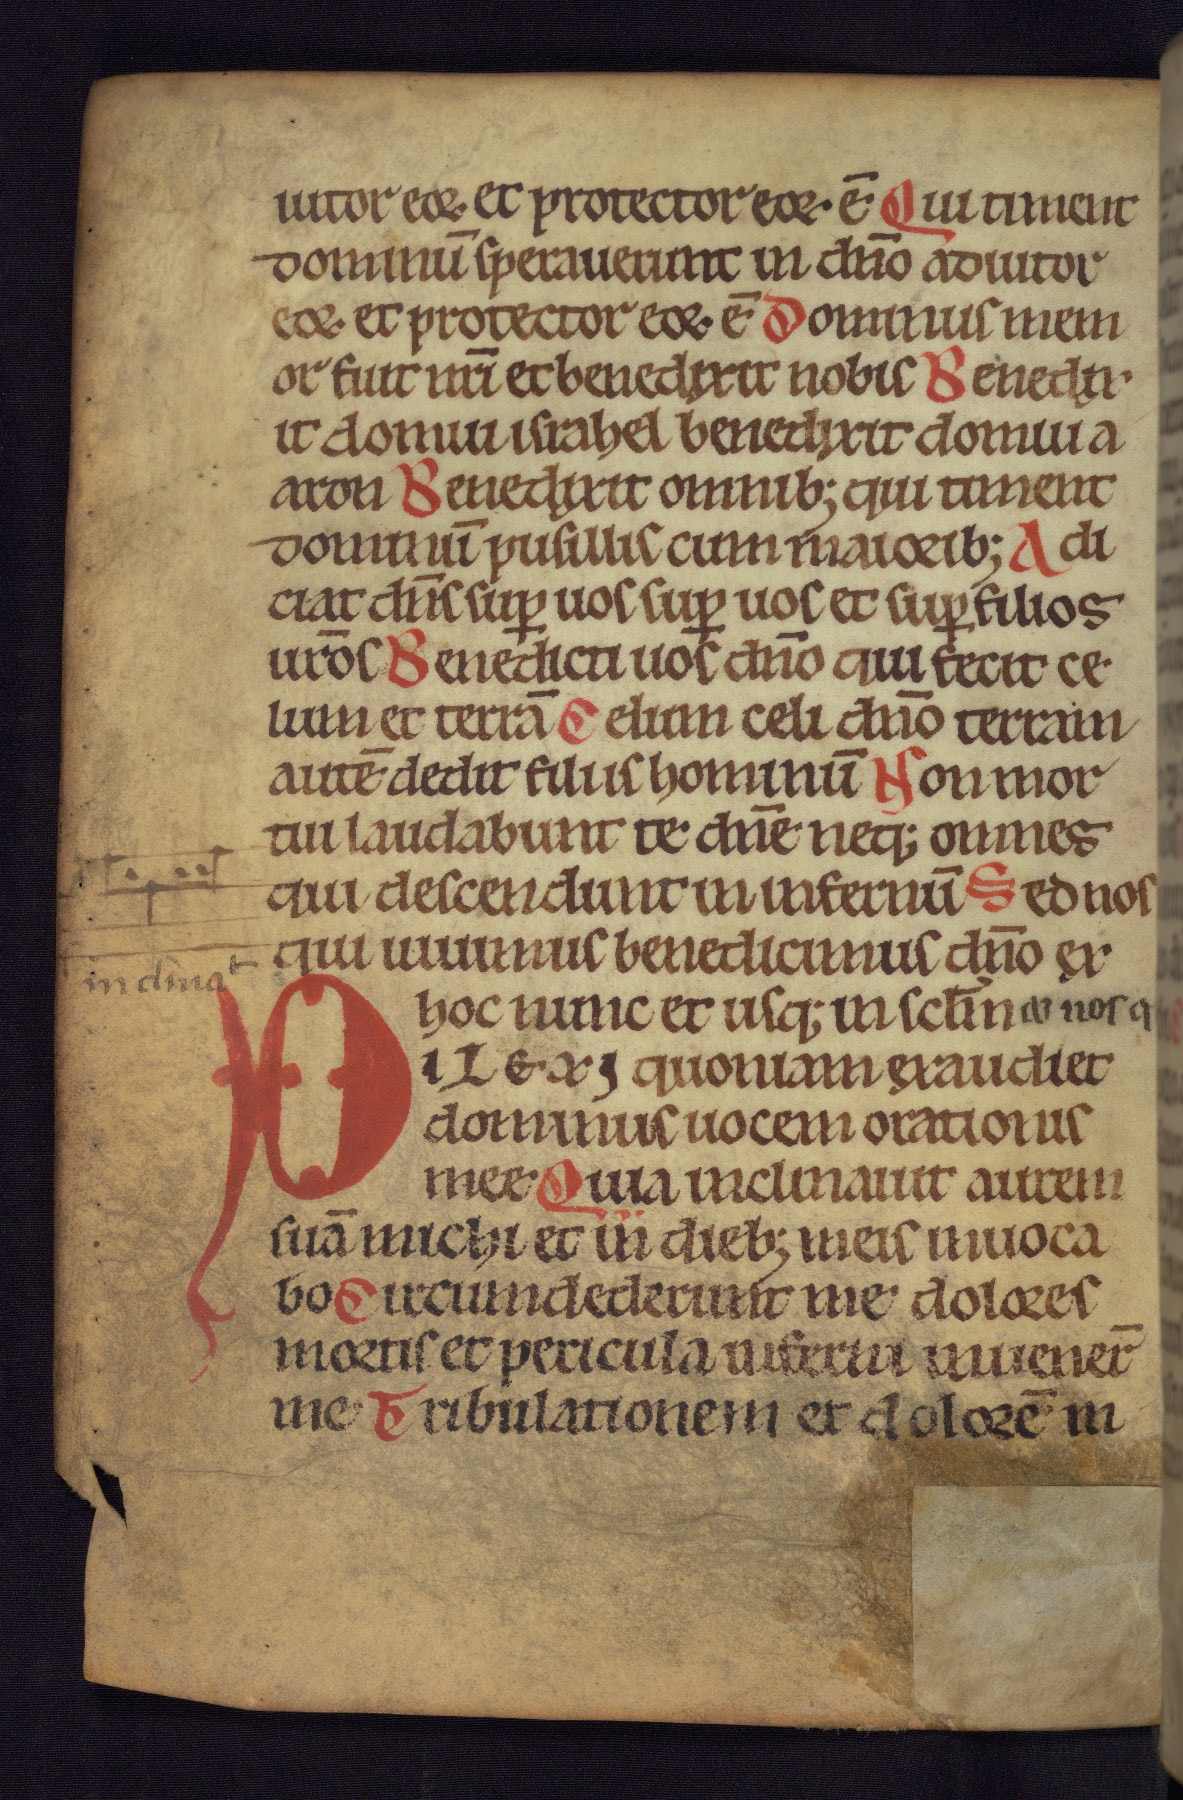 iutor eoꝝ. et protector eoꝝ. ē. Qui timent
dominū sperauerunt in dn̄o adiutor
eoꝝ. et protector eoꝝ. ē Dominus mem
or fuit nr̄i et benedixit nobis Benedix
it domui israhel benedixit domui a
aron Benedixit omnib; qui timent
dominū pusillis cum maiorib; Adi
ciat dn̄s suꝑ uos suꝑ uos et suꝑ filios
ur̄os Benedicti uos dn̄o qui fecit ce
lum et terrā Celum celi dn̄o terram
autē dedit filiis hominū Non mor
tui laudabunt te dn̄e neq; omnes
qui descendunt in infernū Sed nos
qui uiuimus benedicimus dn̄o ex
inclina
hoc nunc et usq; in scl̄m nos q
DILEXI quoniam exaudiet
dominus uocem orationis
mee Quia inclinauit aurem
suā michi et in dieb; meis inuoca
bo Circumdederunt me dolores
mortis et pericula inferni inuener̄
me Tribulationem et dolorē in